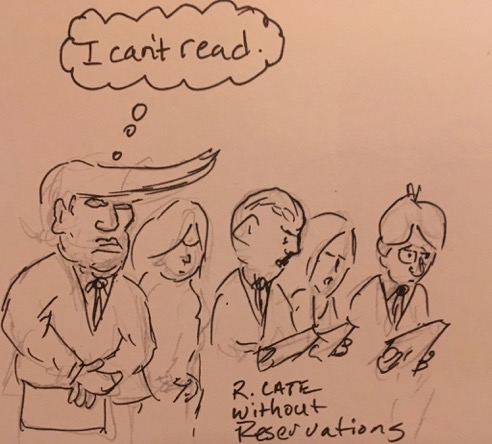 I can't read.
R. CATE
Without
Reservations